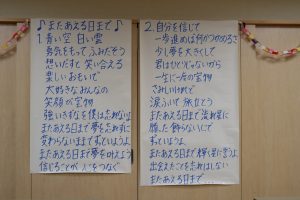 ♪またあえる日まで♪
1. 青い空 白い雲
勇気をもって ふみだそう
想いだすと 笑い合える
楽しい おもいで
大好きな みんなの
笑顔が宝物
強いきずなを 僕は忘れないよ
またあえる日まで 夢を忘れずに
変わらないままで ずっといようよ
またあえる日まで 夢を叶えよう
信じることが 心をつなぐ
2. 自分を信じて
一歩進めば何かつかめるさ
少し夢を大きくして
君はひとりじゃないから
一生に一度の宝物
さみしいけれど
涙ふいて 旅立とう
またあえる日まで 流れ星に
願った 飾らないんで
ずっといようよ
またあえる日まで 輝く星に誓うよ
出会えたことを忘れはしない
またあえる日まで